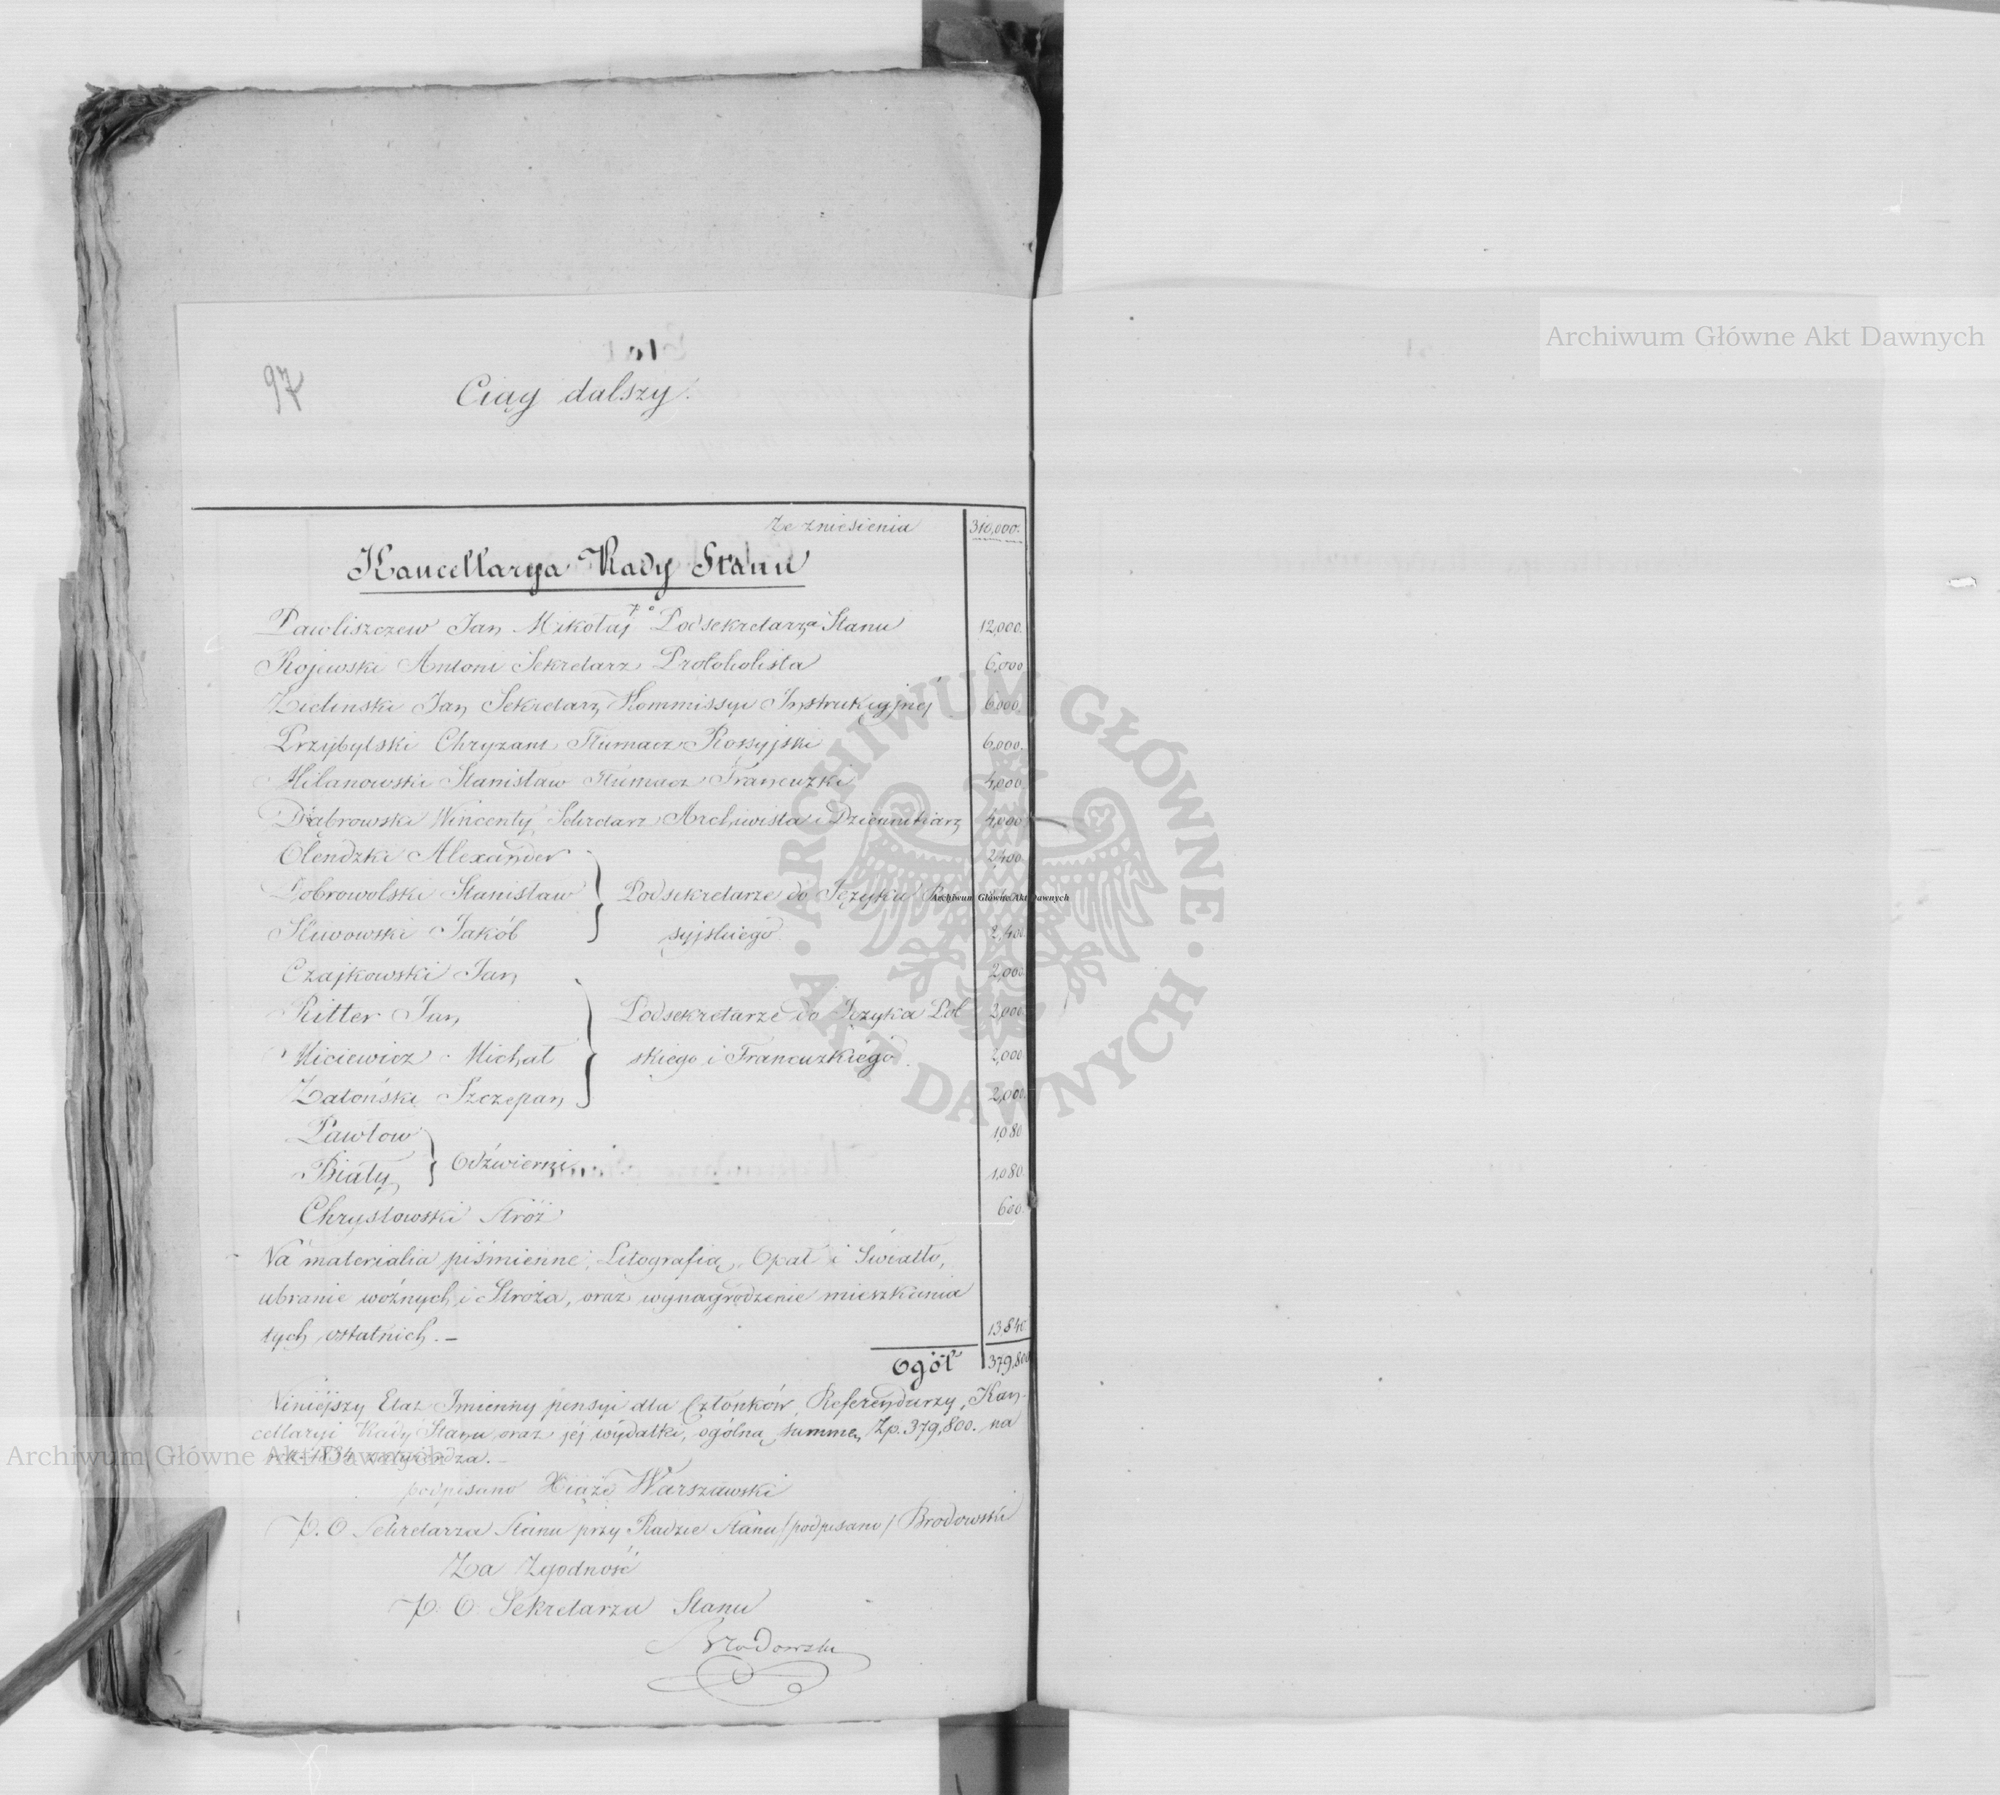 97
Ciąg dalszy.
Ze zniesienia 310,000.
Kancellarya Rady Stanu
Pawliszczew Jan Mikołaj p.o. Podsekretarza Stanu 12,000.
Rojewski Antoni Sekretarz Protokolista 6,000
Zielinski Jan Sekretarz Kommissyi Instrukcyjnej 6,000.
Przybylski Chryzant Tłumacz Rossyjski 6,000.
Milanowski Stanisław Tłumacz Francuzki 4,000
Dąbrowski Wincenty Sekretarz Archiwista i Dziennikarz 4,000
Olendzki Alexander 2,400
Dobrowolski Stanisław Podsekretarze do Języka
Jakób syjskiego 2,400
Czajkowski Jan 2,000
Ritter Jan Podsekretarze do Języka Pol 2,000
Miciewicz Michał skiego i Francuzkiego. 2,000
Zatoński Szczepan 2,000.
Pawłow 1,080
Biały Odźwierni 1,080
Chrystowski Stróż 600.
Na materialia piśmienne, Litografią, Opał i Światło,
ubranie woźnych i Stróża, oraz wynagrodzenie mieszkania
tych ostatnich. — 13,840
Ogół 379,800
Niniéjszy Etat Imienny pensyi dla Członków, Referendarzy, Kan-
cellaryi Rady Stanu oraz jéj wydatki, ogólną summę Zp. 379,800. na
rok 1834 zatwierdza. —
podpisano Xiąże Warszawski
P. O Sekretarza Stanu przy Radzie Stanu /podpisano/ Brodowski
Za Zgodność
P. O. Sekretarza Stanu
Brodowski
Archiwum Główne Akt Dawnych
Archiwum Główne Akt Dawnych
Archiwum Główne Akt Dawnych
ARCHIWUM GŁÓWNE • AKT DAWNYCH •